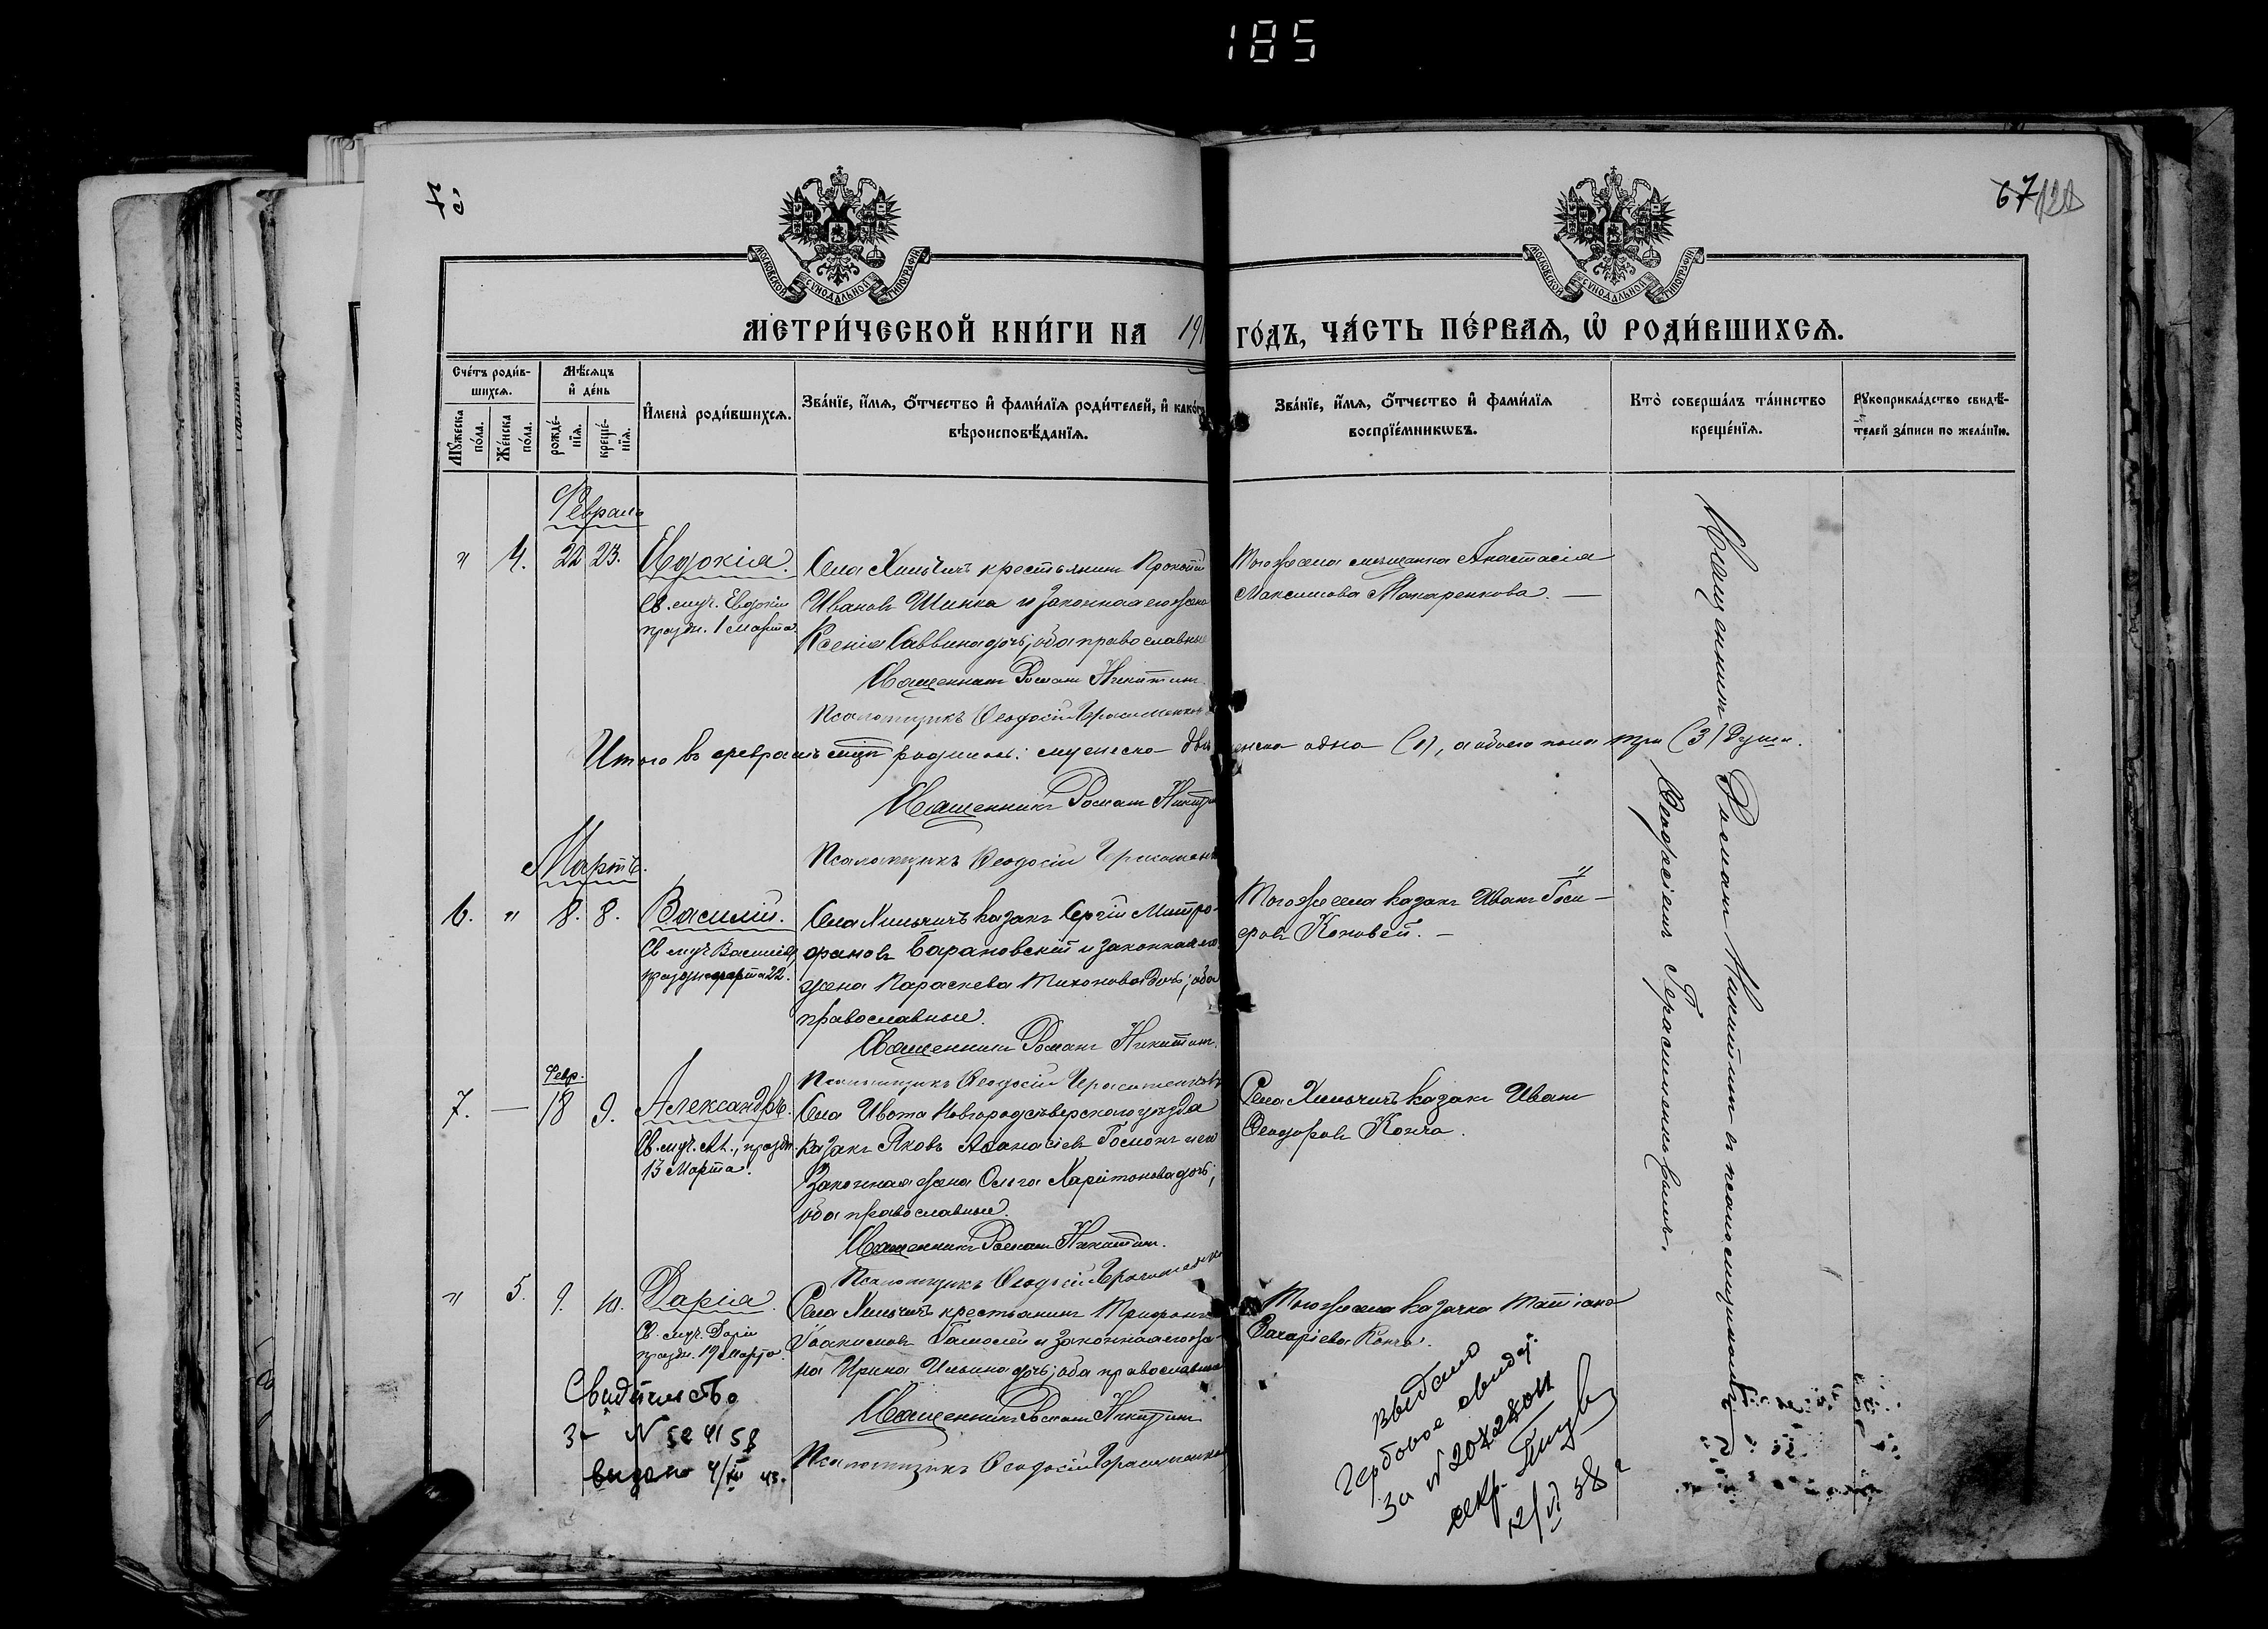 185
67
МОСКОВСКОЙ СУНОДАЛЬНОЙ ТИПОГРАФІИ
МОСКОВСКОЙ СУНОДАЛЬНОЙ ТИПОГРАФІИ
МЕТРИ́ЧЕСКОЙ КНИ́ГИ НА 191 ГО́ДЪ, ЧА́СТЬ ПЕ́РВАЯ, Ѡ҆ РОДИ́ВШИХСЯ.
Сче́тъ роди́в-
шихся.
Мѣ́сяцъ
и҆ де́нь
Му́жеска
по́ла.
Же́нска
по́ла.
рожде́-
нїя.
креще́-
нїя.
И҆мена̀ роди́вшихся.
Зва́нїе, и҆́мя, ѻ҆́тчество и҆ фами́лїя роди́телей, и҆ како́гѡ
вѣроисповѣ́данїя.
Зва́нїе, и҆́мя, ѻ҆́тчество и҆ фами́лїя
воспрїе́мникѡвъ.
Кто̀ соверша́лъ та́инство
креще́нїя.
Рꙋкоприкла́дство свидѣ́-
телей за́писи по жела́нїю.
Февраль
" 4. 22 23. Евдокія.
Св. муч. Евдокіи
праздн. 1 Марта.
Села Хильчичъ крестьянинъ Прокопій
Ивановъ Шинка и законная его жена
Ксенія Саввина дочь; оба православные
Священникъ Романъ Никитинъ.
Псаломщикъ Ѳеодосій Герасименковъ
Того же села мещанка Анастасія
Максимова Макаренкова. —
Итого въ феврале мцѣ родилось: мужеска два женска одно (1), а обоего пола три (3) души.
Священникъ Романъ Никитинъ
Псаломщикъ Ѳеодосій Герасименковъ
Мартъ.
6. " 8. 8. Василій.
Св муч Василія,
праздн марта 22.
Села Хильчичъ казакъ Сергій Митро-
фановъ Барановскій и законная его
жена Параскева Тихонова дочь; оба
православные.
Священникъ Романъ Никитинъ.
Псаломщикъ Ѳеодосій Герасименковъ
Того же села казакъ Иванъ Іоси-
фовъ Коновей. —
Февр.
7. — 18 9. Александръ.
Св. муч. Ал., праздн.
13 Марта.
Села Ивота Новгородсѣверского уѣзда
казакъ Яковъ Аѳанасіевъ Гомонъ и его
законная жена Ольга Харитонова дочь;
оба православные.
Священникъ Романъ Никитинъ.
Псаломщикъ Ѳеодосій Герасименковъ
Села Хильчичъ казакъ Иванъ
Ѳеодоровъ Конча.
" 5. 9. 10. Дарія.
Св. муч. Даріи
праздн. 19 Марта.
Села Хильчичъ крестьянинъ Трифонъ
Іоакимовъ и законная его же-
на Ирина Ильина дочь; оба православные
Священникъ Романъ Никитинъ
Псаломщикъ Ѳеодосій Герасименковъ
Того же села казачка Татіана
Захаріева Конча.
Священникъ Романъ Никитинъ съ псаломщикомъ
Ѳеодосіемъ Герасименковымъ.
Свидительство
за N
выдано 4/XII 43.
Выдано
гербовое свидет.
За N
секр.
12/VI 58 г